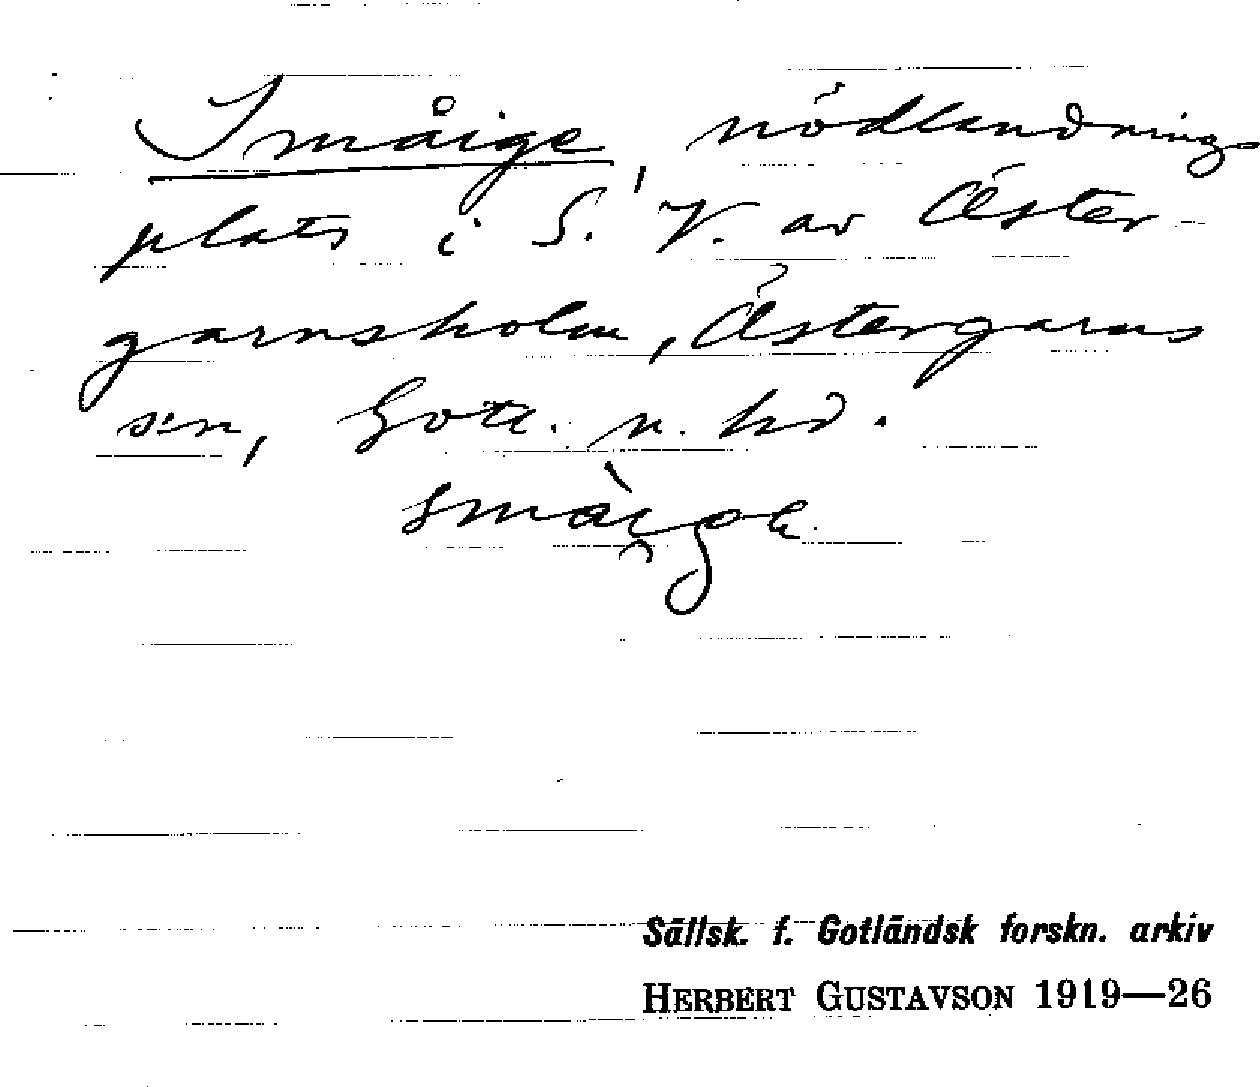 Småige, nödlandnings
plats i S. V. av Öster-
garnsholm, Östergarns
s:n, Gotl. n. hd.
smàige
Sällsk. f. Gotländsk forskn. arkiv
HERBERT GUSTAVSON 1919—26